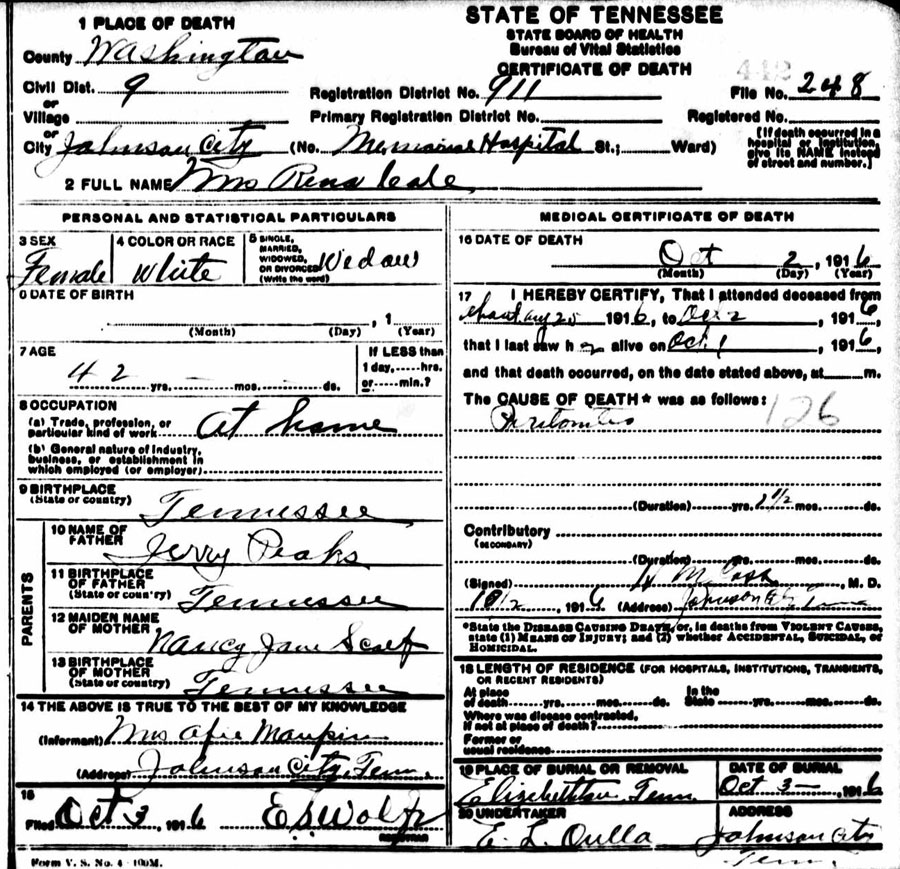 STATE OF TENNESSEE
STATE BOARD OF HEALTH
Bureau of Vital Statistics
CERTIFICATE OF DEATH
1 PLACE OF DEATH
County Washington
Civil Dist. 9 Registration District No. 911 442 File No. 248
or
Village Primary Registration District No. Registered No.
or
City Johnson City (No. Memorial Hospital St.; Ward) [If death occurred in a hospital or institution, give its NAME instead of street and number.]
2 FULL NAME Mrs Rena
PERSONAL AND STATISTICAL PARTICULARS
3 SEX Female
4 COLOR OR RACE White
5 SINGLE, MARRIED, WIDOWED, OR DIVORCED (Write the word) Widow
6 DATE OF BIRTH
, 1
(Month) (Day) (Year)
7 AGE
42 yrs. — mos. ds.
If LESS than
1 day, hrs.
or min.?
8 OCCUPATION
(a) Trade, profession, or
particular kind of work At home
(b) General nature of industry,
business, or establishment in
which employed (or employer)
9 BIRTHPLACE
(State or country) Tennessee
PARENTS
10 NAME OF
FATHER Jerry Peaks
11 BIRTHPLACE
OF FATHER
(State or country) Tennessee
12 MAIDEN NAME
OF MOTHER Nancy Jane Scalf
13 BIRTHPLACE
OF MOTHER
(State or country) Tennessee
14 THE ABOVE IS TRUE TO THE BEST OF MY KNOWLEDGE
(Informant) Mrs Maupin
(Address) Johnson City, Tenn.
15
Filed Oct 3, 1916
REGISTRAR
Form V. S. No. 4-100M.
MEDICAL CERTIFICATE OF DEATH
16 DATE OF DEATH
Oct 2, 1916
(Month) (Day) (Year)
17 I HEREBY CERTIFY, That I attended deceased from
about Aug 25 1916, to Oct 2, 1916,
that I last saw h er alive on Oct. 1, 1916,
and that death occurred, on the date stated above, at m.
The CAUSE OF DEATH* was as follows: 126
Peritonitis
(Duration) yrs. 1 1/2 mos. ds.
Contributory
(SECONDARY)
(Duration) yrs. mos. ds.
(Signed) , M. D.
10/2, 1916 (Address) Johnson City Tenn
*State the DISEASE CAUSING DEATH, or, in deaths from VIOLENT CAUSES,
state (1) MEANS OF INJURY; and (2) whether ACCIDENTAL, SUICIDAL, or
HOMICIDAL.
18 LENGTH OF RESIDENCE (FOR HOSPITALS, INSTITUTIONS, TRANSIENTS,
OR RECENT RESIDENTS)
At place of death yrs. mos. ds. In the State yrs. mos. ds.
Where was disease contracted,
if not at place of death?
Former or
usual residence
19 PLACE OF BURIAL OR REMOVAL
Elizabethton Tenn.
DATE OF BURIAL
Oct 3 — 1916
20 UNDERTAKER
E. L.
ADDRESS
Johnson City
Tenn.